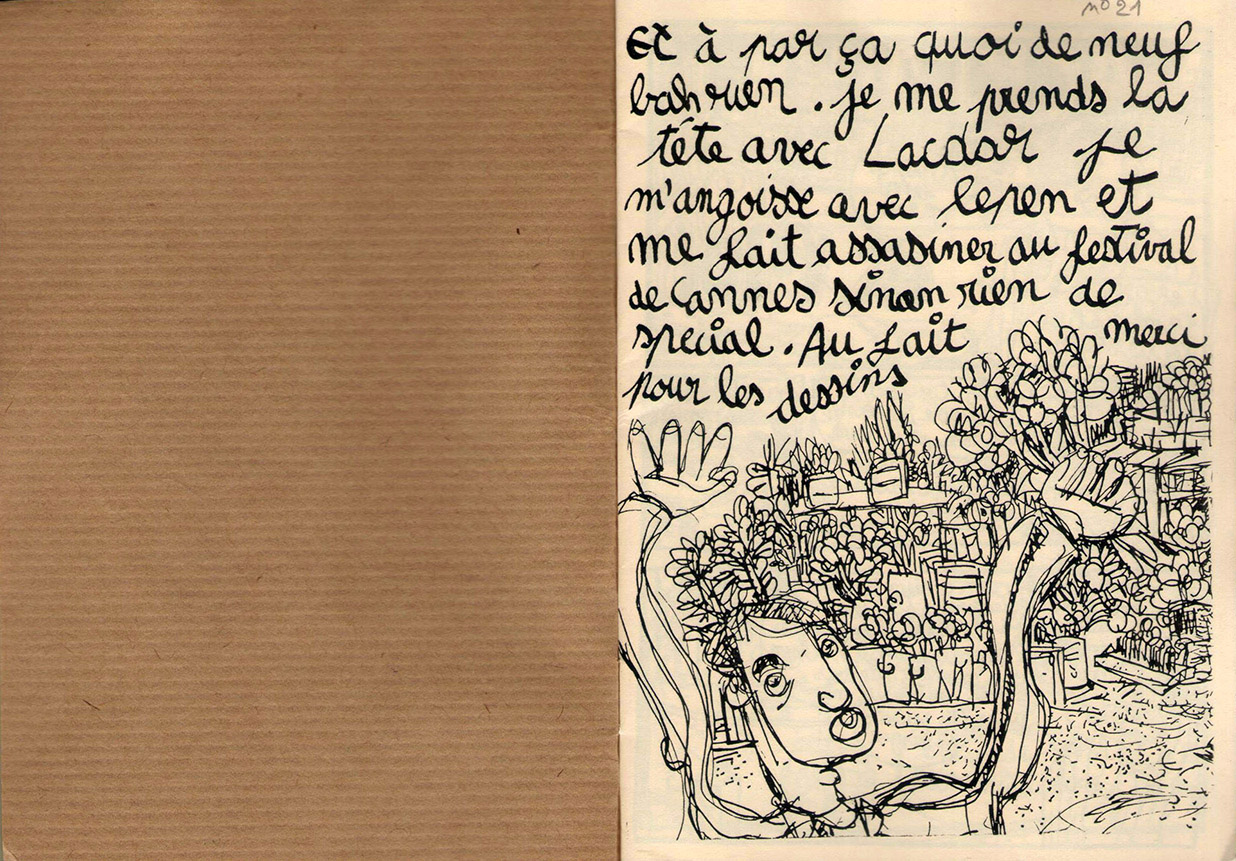 n° 21
Et à par ça quoi de neuf
bah rien. je me prends la
tête avec Lacdar je
m'angoisse avec lepen et
me fait assasiner au festival
de Cannes sinon rien de
special. Au fait merci
pour les dessins